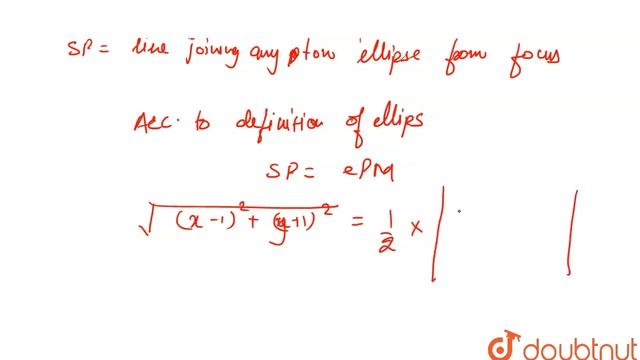 SP = line joining any pt on ellipse from focus
Acc. to definition of ellips
SP = ePM
√(x-1)² + (y+1)² = 1/2 × | |
doubtnut